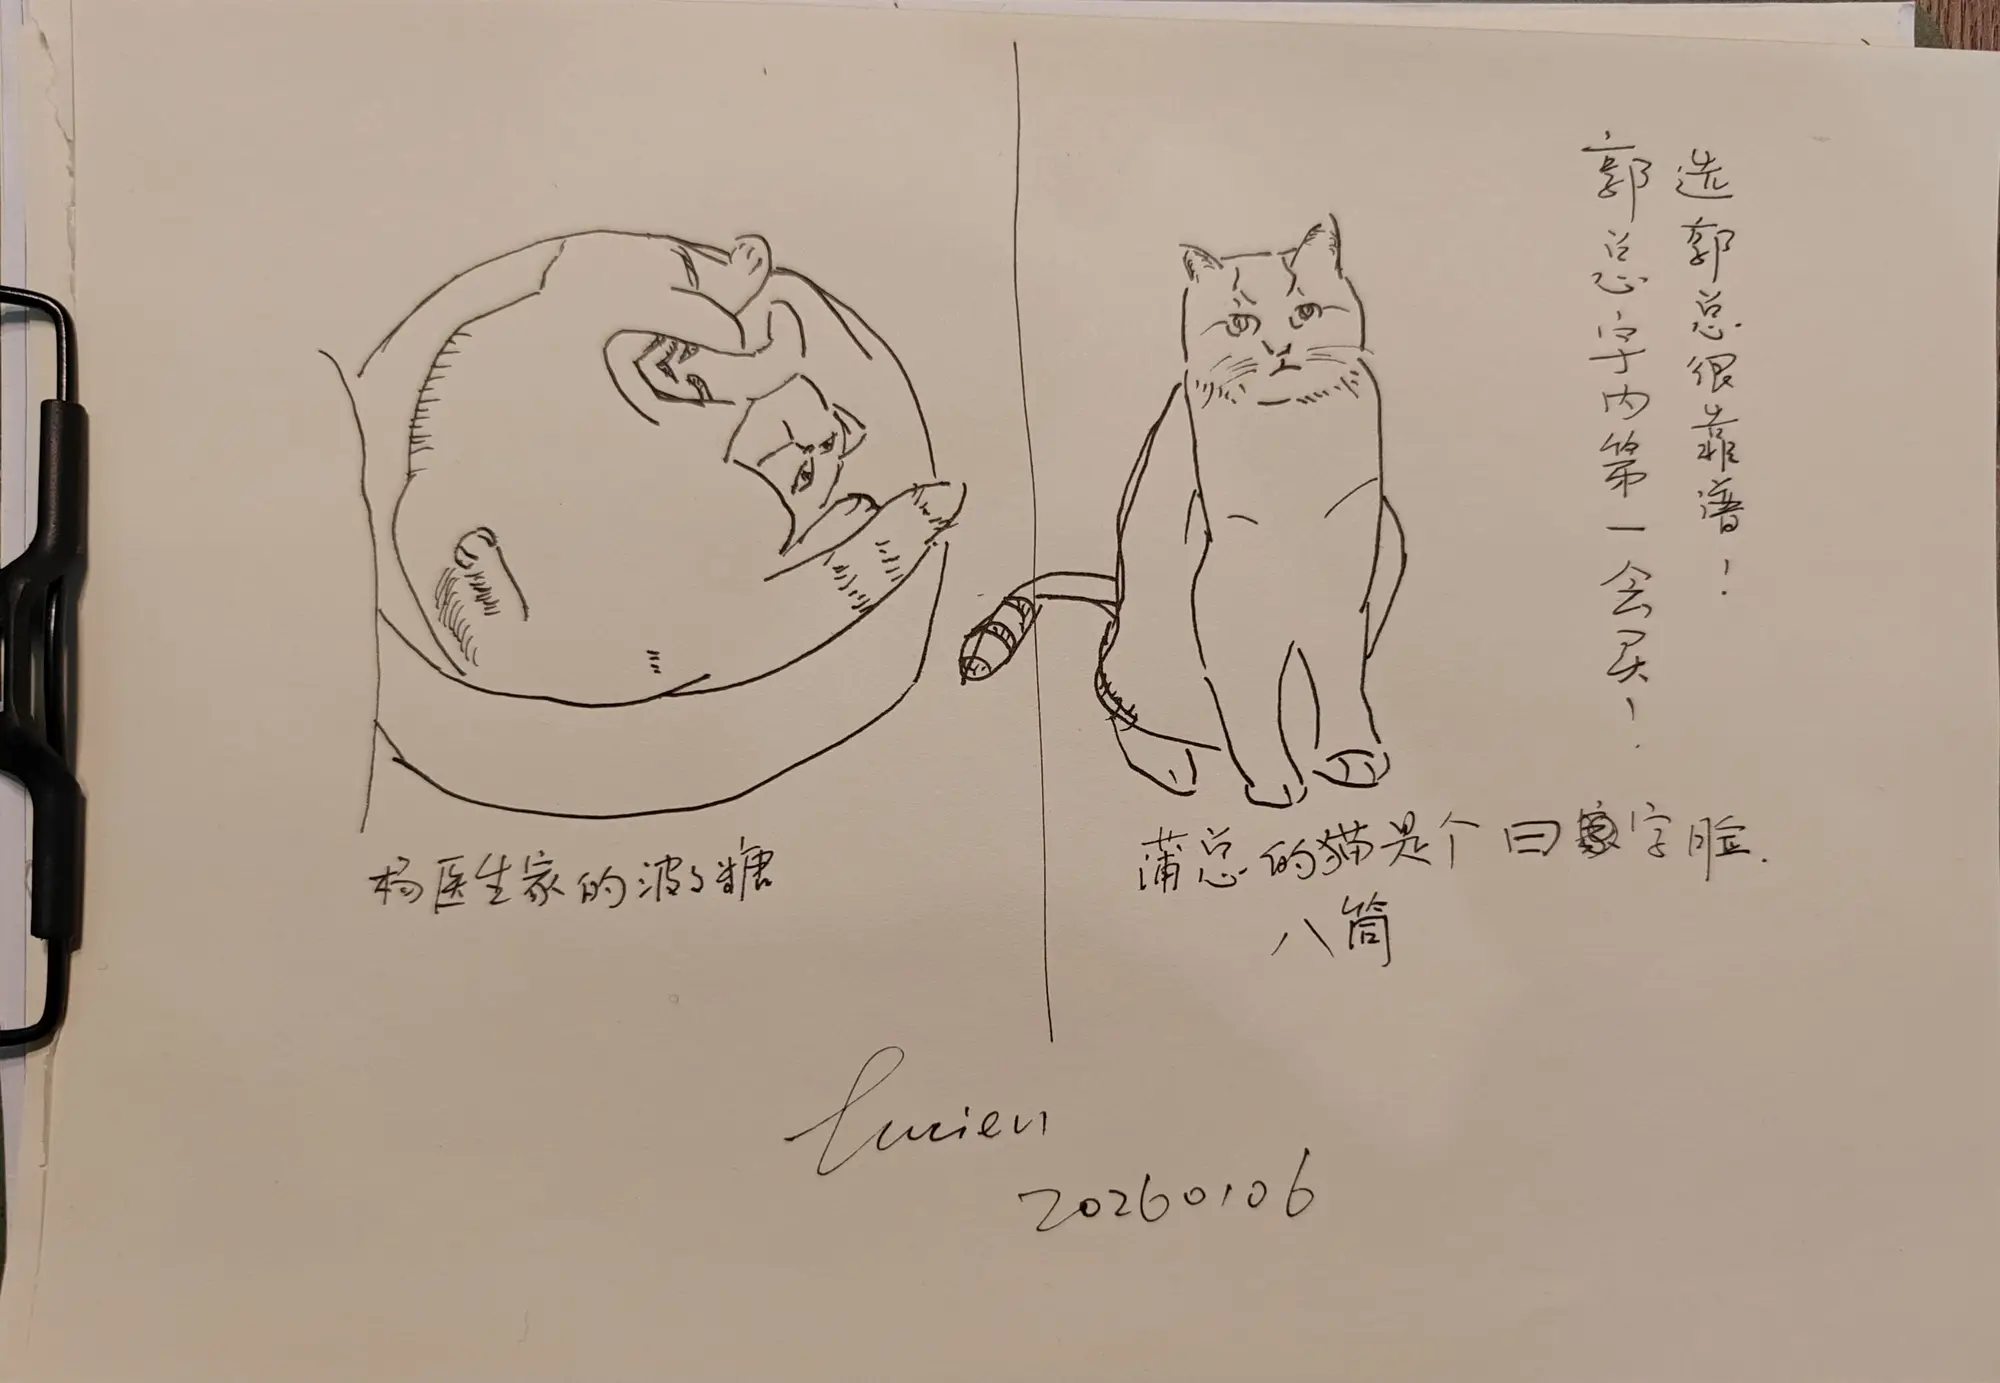 选郭总很靠谱！
郭总宇内第一会买！
杨医生家的波波糖
蒲总的猫是个曰字脸.
八筒
Lucien
20260106